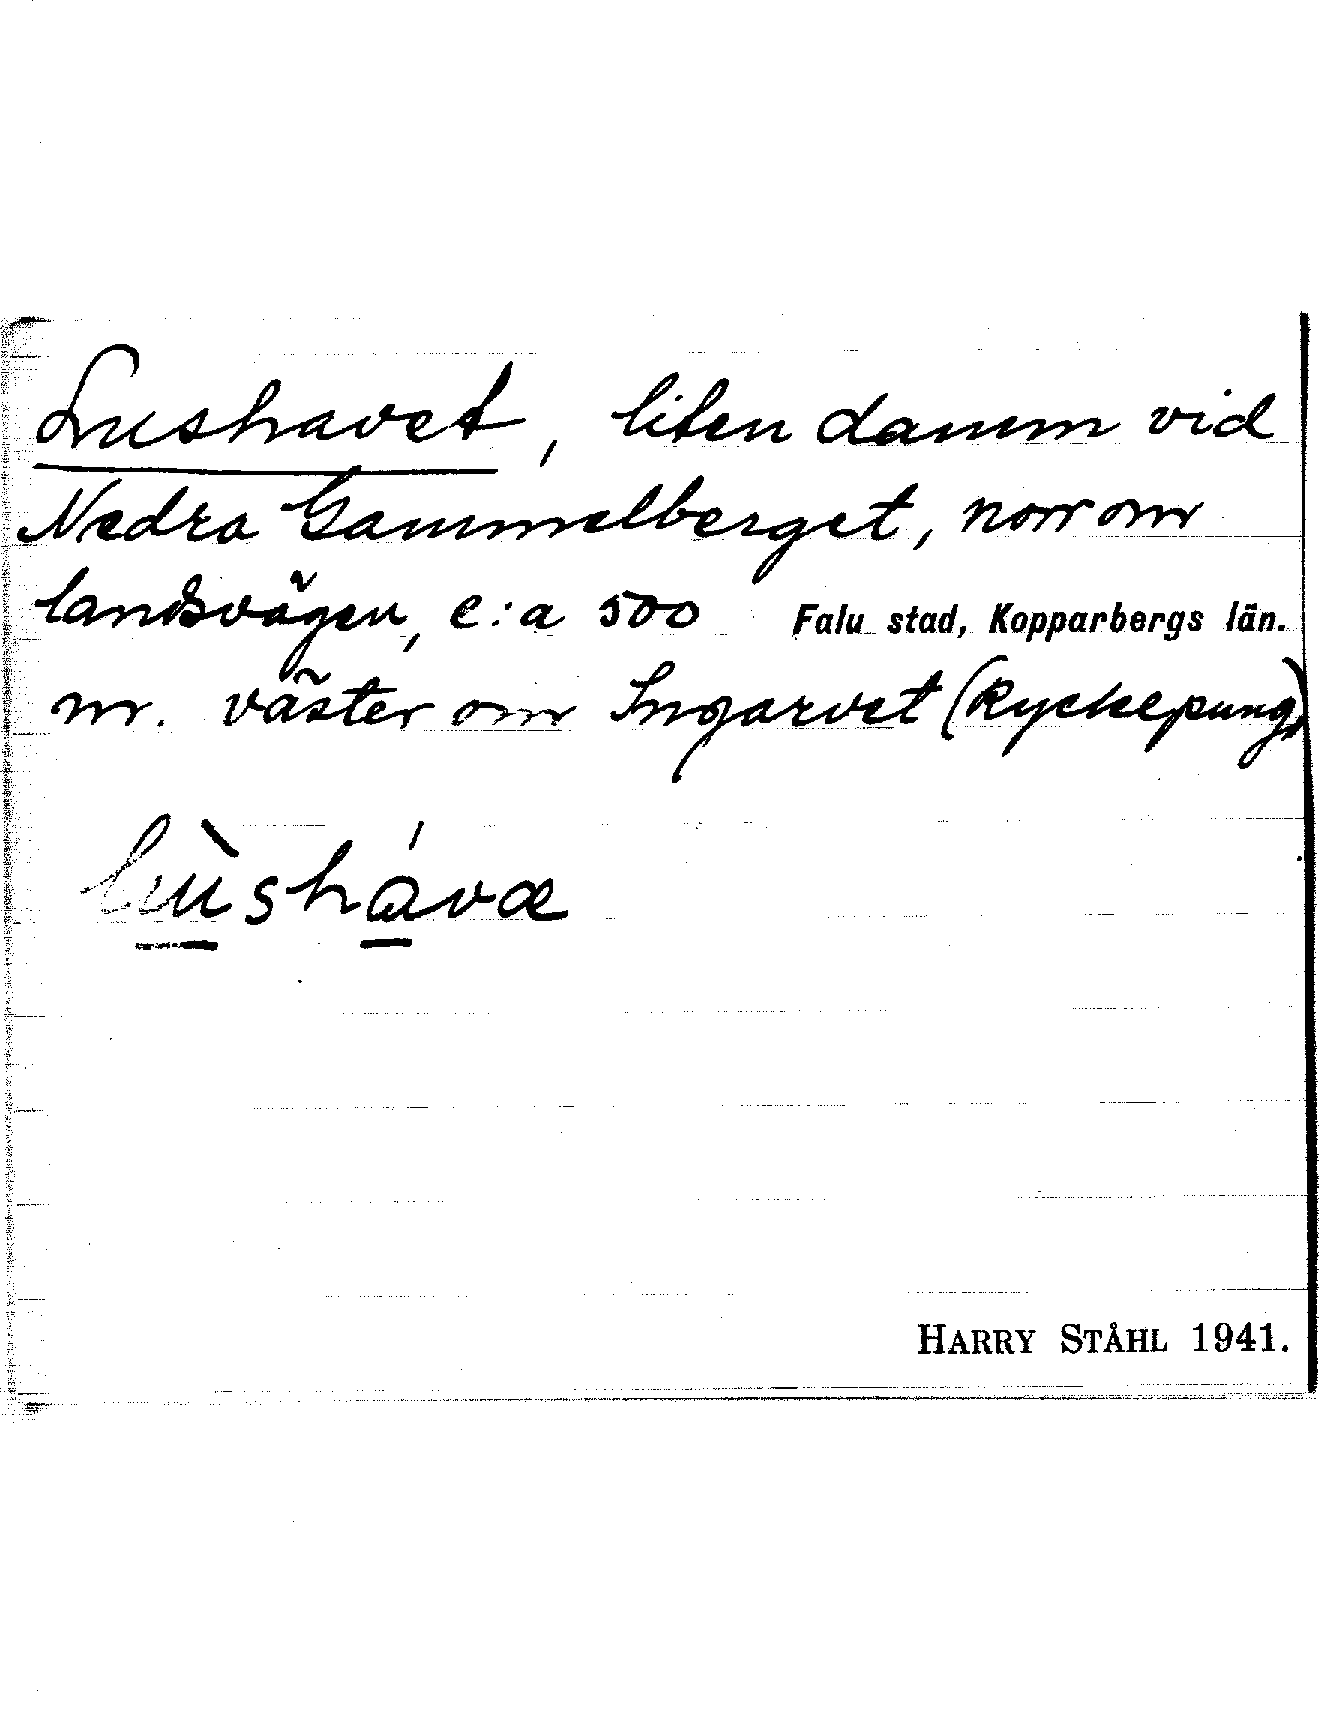 Lushavet, liten damm vid
Nedra Gammelberget, norr om
landsvägen, c:a 500 Falu stad, Kopparbergs län.
m. väster om Ingarvet (Ryckepung)
lùshávæ
HARRY STÅHL 1941.